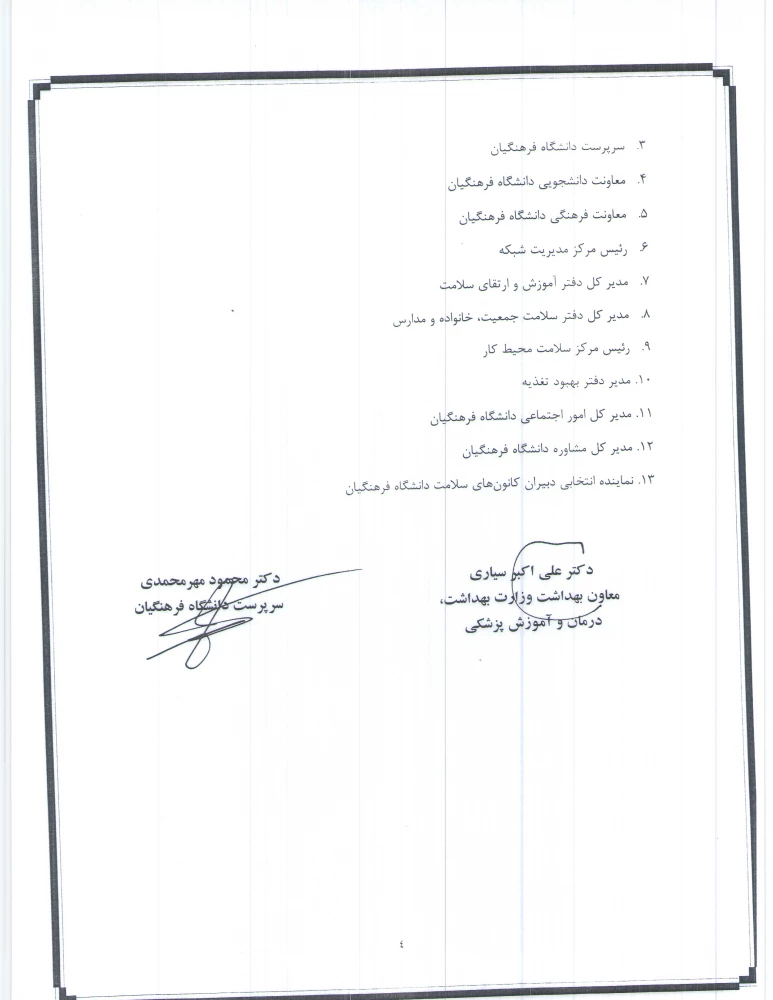 ۳. سرپرست دانشگاه فرهنگیان
۴. معاونت دانشجویی دانشگاه فرهنگیان
۵. معاونت فرهنگی دانشگاه فرهنگیان
۶. رئیس مرکز مدیریت شبکه
۷. مدیر کل دفتر آموزش و ارتقای سلامت
۸. مدیر کل دفتر سلامت جمعیت، خانواده و مدارس
۹. رئیس مرکز سلامت محیط کار
۱۰. مدیر دفتر بهبود تغذیه
۱۱. مدیر کل امور اجتماعی دانشگاه فرهنگیان
۱۲. مدیر کل مشاوره دانشگاه فرهنگیان
۱۳. نماینده انتخابی دبیران کانون‌های سلامت دانشگاه فرهنگیان
دکتر علی اکبر سیاری
معاون بهداشت وزارت بهداشت،
درمان و آموزش پزشکی
دکتر محمود مهرمحمدی
سرپرست دانشگاه فرهنگیان
٤